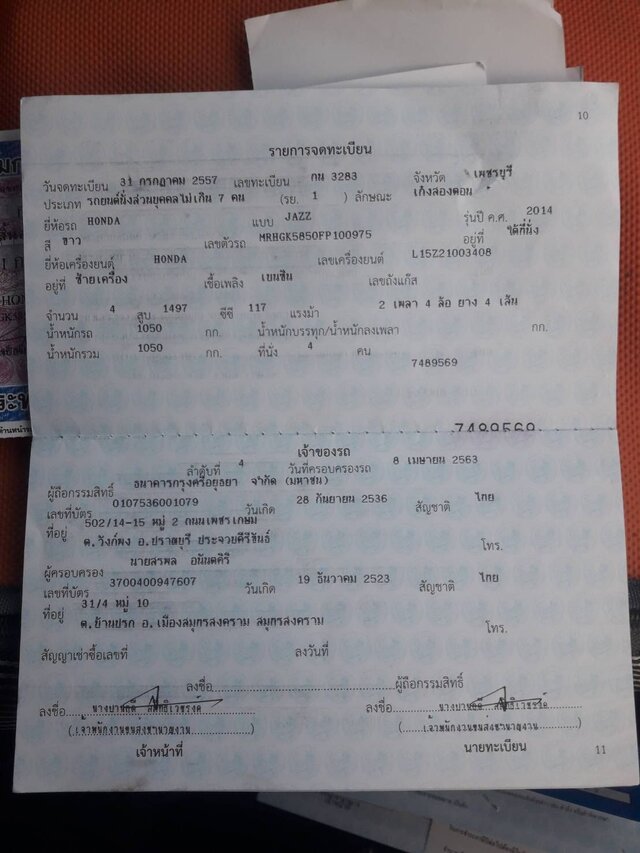 10
รายการจดทะเบียน
วันจดทะเบียน 31 กรกฎาคม 2557 เลขทะเบียน กน 3283 จังหวัด เพชรบุรี
ประเภท รถยนต์นั่งส่วนบุคคลไม่เกิน 7 คน (รย. 1 ) ลักษณะ เก๋งสองตอน
ยี่ห้อรถ HONDA แบบ JAZZ รุ่นปี ค.ศ. 2014
สี ขาว เลขตัวรถ MRHGK5850FP100975 อยู่ที่ ใต้ที่นั่ง
ยี่ห้อเครื่องยนต์ HONDA เลขเครื่องยนต์ L15Z21003408
อยู่ที่ ซ้ายเครื่อง เชื้อเพลิง เบนซิน เลขถังแก๊ส
จำนวน 4 สูบ 1497 ซีซี 117 แรงม้า 2 เพลา 4 ล้อ ยาง 4 เส้น
น้ำหนักรถ 1050 กก. น้ำหนักบรรทุก/น้ำหนักลงเพลา กก.
น้ำหนักรวม 1050 กก. ที่นั่ง 4 คน
7489569
7489569
เจ้าของรถ
ลำดับที่ 4 วันที่ครอบครองรถ 8 เมษายน 2563
ผู้ถือกรรมสิทธิ์ ธนาคารกรุงศรีอยุธยา จำกัด (มหาชน)
เลขที่บัตร 0107536001079 วันเกิด 28 กันยายน 2536 สัญชาติ ไทย
ที่อยู่ 502/14-15 หมู่ 2 ถนนเพชรเกษม
ต.วังก์พง อ.ปราณบุรี ประจวบคีรีขันธ์ โทร.
ผู้ครอบครอง นายสรพล อนันตศิริ
เลขที่บัตร 3700400947607 วันเกิด 19 ธันวาคม 2523 สัญชาติ ไทย
ที่อยู่ 31/4 หมู่ 10
ต.บ้านปรก อ.เมืองสมุทรสงคราม สมุทรสงคราม โทร.
สัญญาเช่าซื้อเลขที่ ลงวันที่
ลงชื่อ ผู้ถือกรรมสิทธิ์
ลงชื่อ ลงชื่อ
(เจ้าพนักงานขนส่งชำนาญงาน) (เจ้าพนักงานขนส่งชำนาญงาน)
เจ้าหน้าที่ นายทะเบียน
11